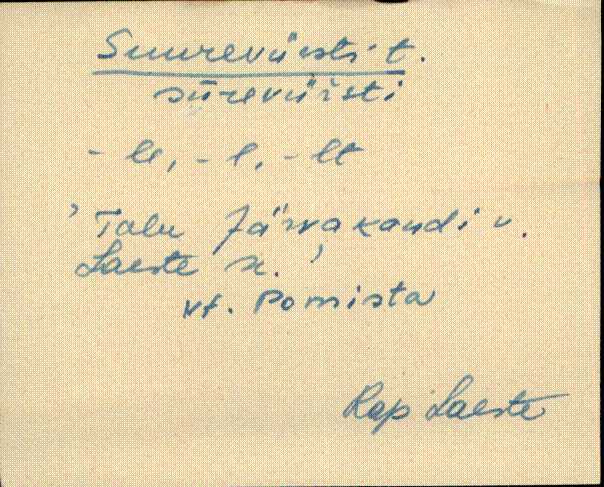 Suurevürsti t.
sūrevürsti
- le, - l, - lt
'Talu Järvakandi v.
Laeste k.'
vt. Pomista
Rap Laeste